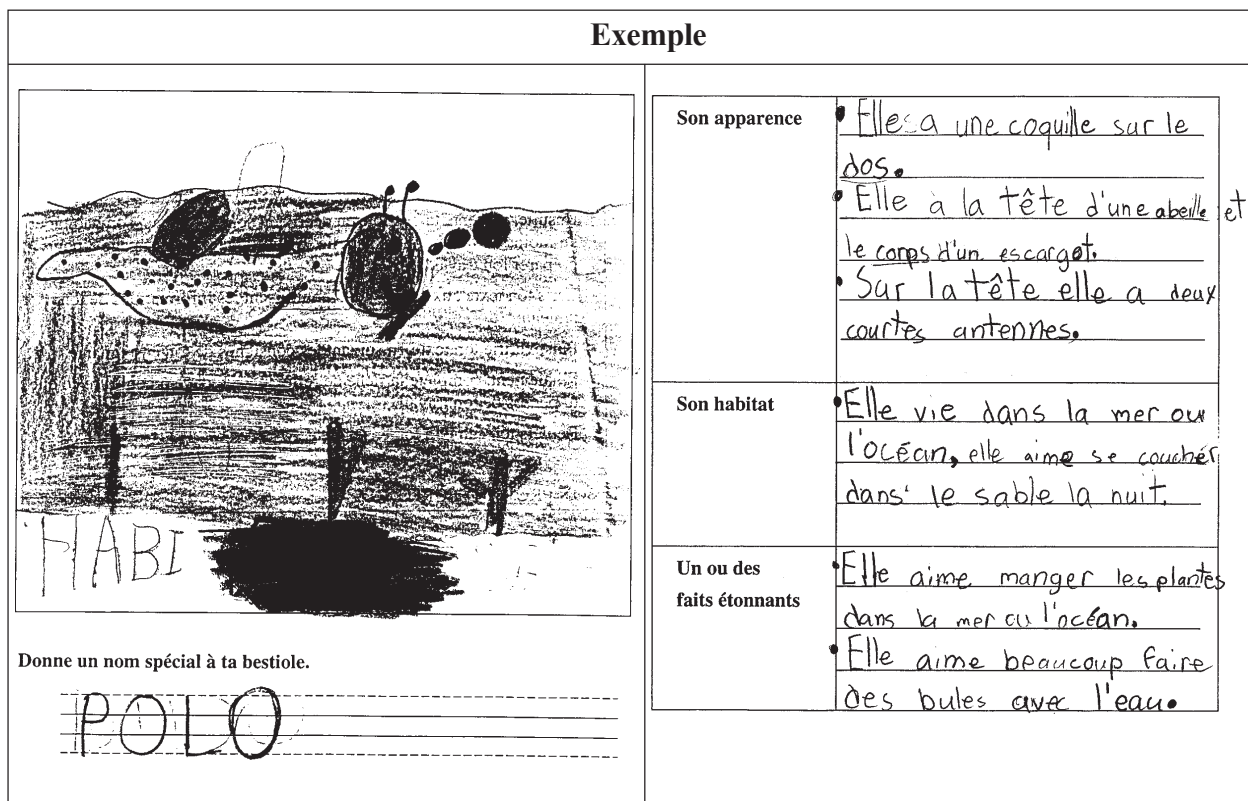 Exemple
HABI
Donne un nom spécial à ta bestiole.
POLO
Son apparence
• Elle a une coquille sur le
dos.
• Elle à la tête d'une abeille et
le corps d'un escargot.
• Sur la tête elle a deux
courtes antennes.
Son habitat
• Elle vie dans la mer ou
l'océan, elle aime se couchér
dans le sable la nuit.
Un ou des
faits étonnants
• Elle aime manger les plantes
dans la mer ou l'océan.
• Elle aime beaucoup faire
des bules avec l'eau.